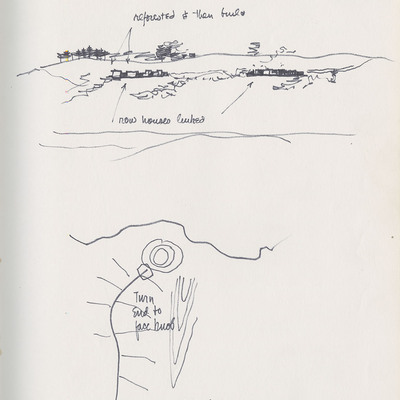 reforested & then built
row houses linked
Turn
End to
face bldg